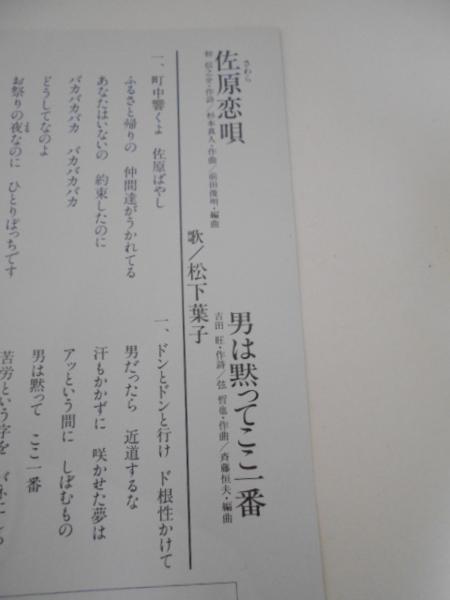 佐原恋唄
さわら
信之介・作詩／杉本眞人・作曲／前田俊明・編曲
一、町中響くよ 佐原ばやし
ふるさと帰りの 仲間達がうかれてる
あなたはいないの 約束したのに
バカバカバカ バカバカバカ
どうしてなのよ
お祭りの夜なのに ひとりぼっちです
歌／松下葉子
男は黙ってここ一番
吉田 旺・作詩／弦 哲也・作曲／斉藤恒夫・編曲
一、ドンとドンと行け ド根性かけて
男だったら 近道するな
汗もかかずに 咲かせた夢は
アッという間に しぼむもの
男は黙って ここ一番
苦労という字を バネにし